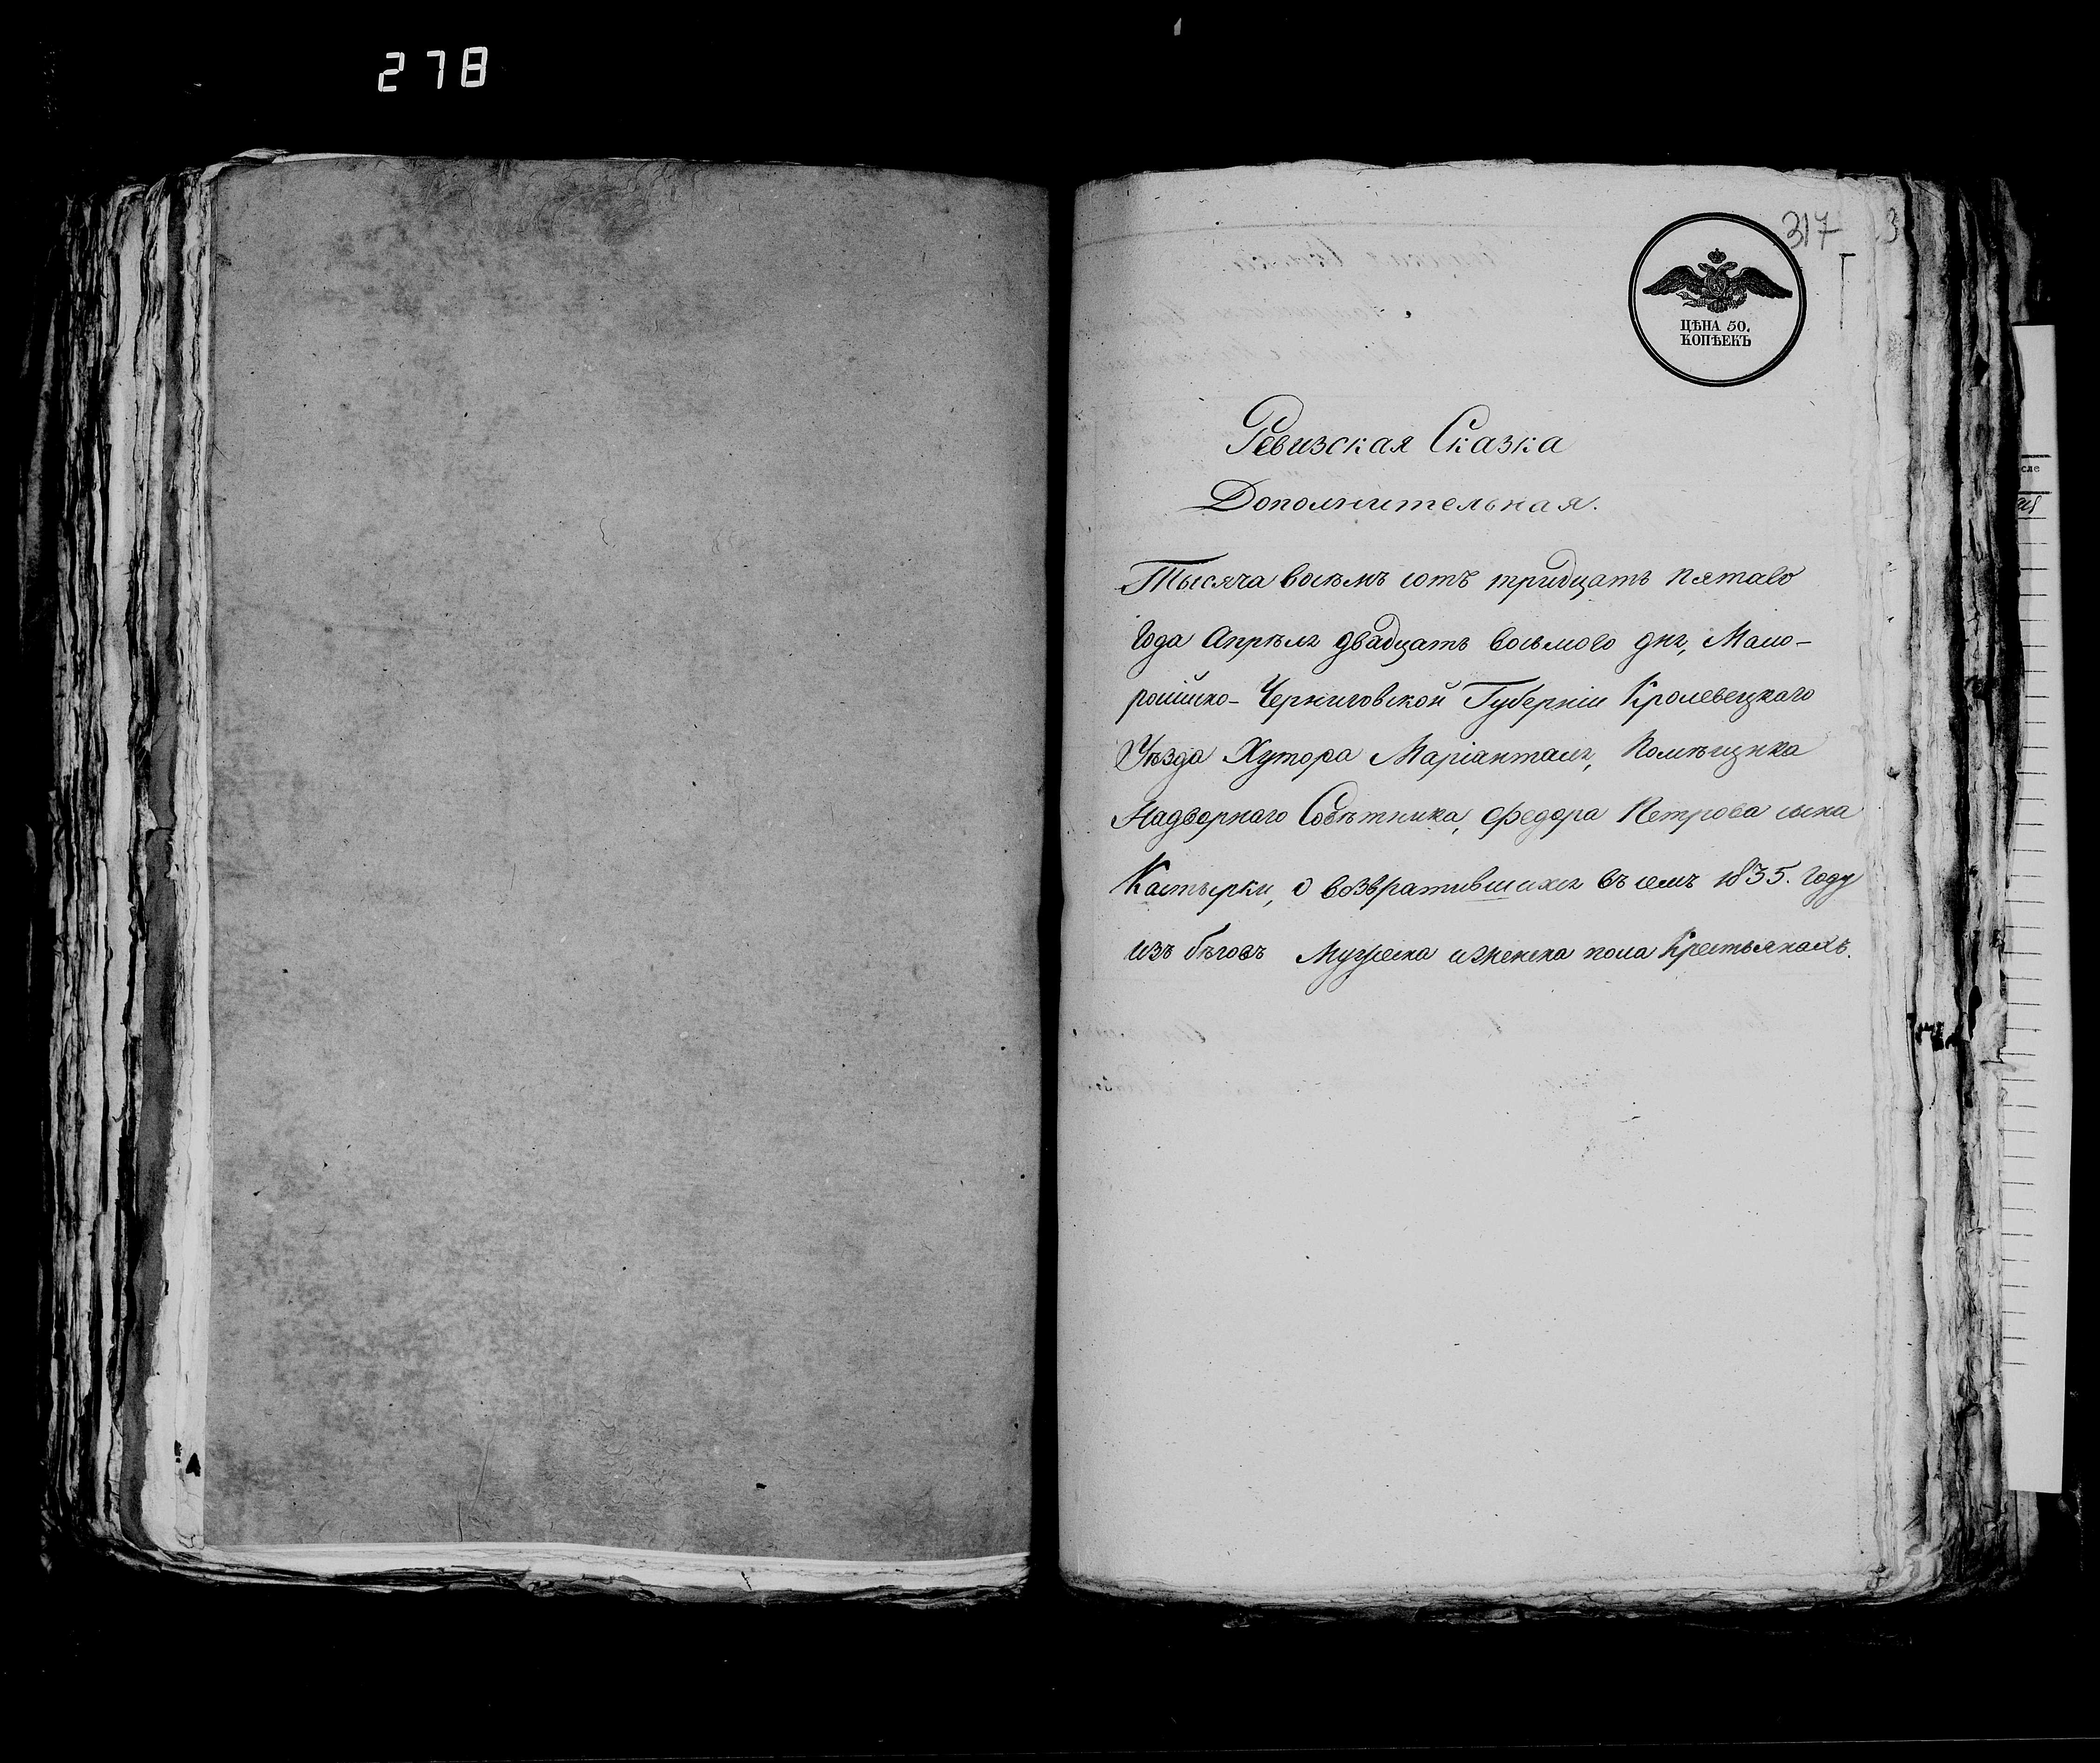 278
317
3
ЦѢНА 50.
КОПѢЕКЪ
Ревизская Сказка
Дополнительная.
Тысяча восемъ сотъ тридцать пятаго
года Апрѣля двадцать восьмого дня, Мало-
россійско-Черниговской Губерніи Кролевецкаго
Уѣзда Хутора Маріанталя, Помѣщика
Надворнаго Совѣтника, Федора Петрова сына
Костырки, о возвратившихся въ семъ 1835. году
изъ бѣговъ Мужеска и женска пола Крестьянахъ.
сле